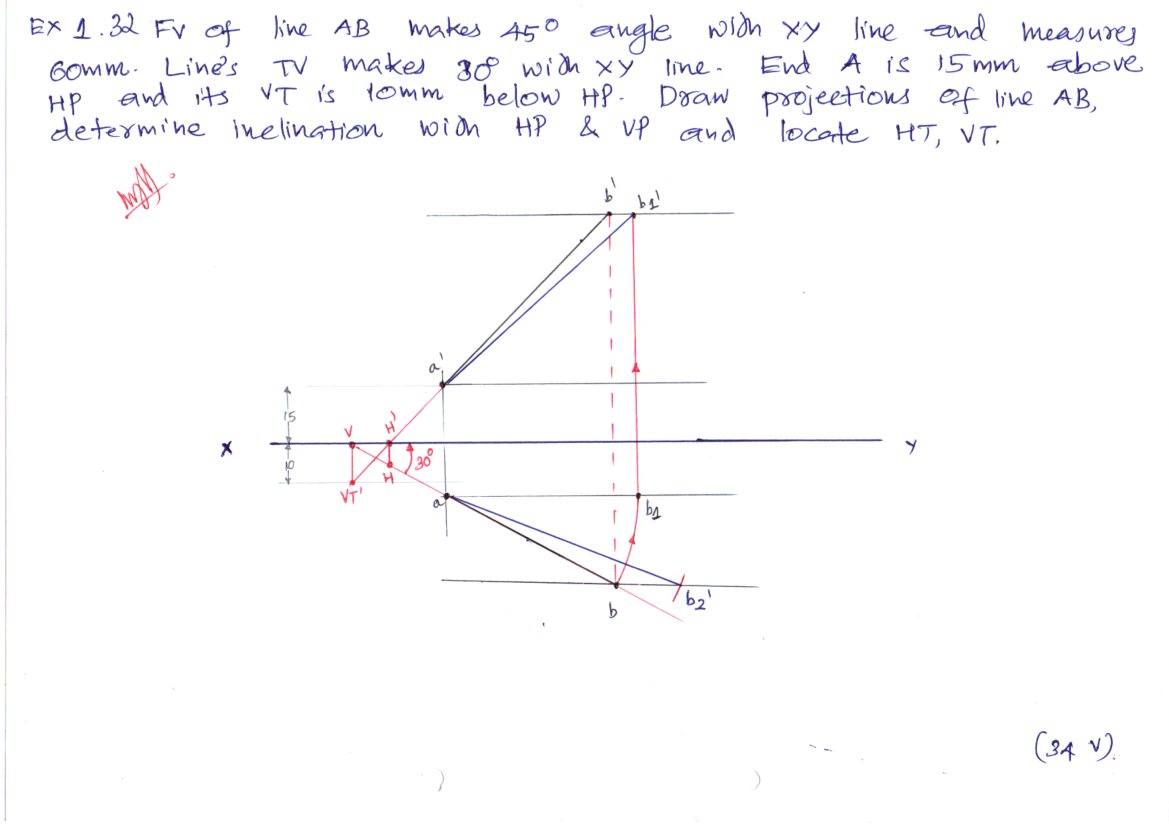 EX 1.32 FV of line AB makes 45° angle with XY line and measures
60mm. Line's TV makes 30° with XY line. End A is 15mm above
HP and its VT is 10mm below HP. Draw projections of line AB,
determine inclination with HP & VP and locate HT, VT.
b'
b1'
a'
15
V
H'
X
Y
10
30°
VT'
H
a
b1
b2'
b
(34 V).